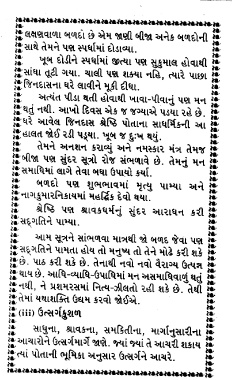 લક્ષણવાળા બળદો છે એમ જાણી બીજા અનેક બળદોની
સાથે તેમને પણ સ્પર્ધામાં દોડાવ્યા.
ખૂબ દોડીને સ્પર્ધામાં જીત્યા પણ સુકુમાલ હોવાથી
સાંધા તૂટી ગયા. ચાલી પણ શક્યા નહિ, ત્યારે પાછા
જિનદાસના ઘરે લાવીને મૂકી દીધા.
અત્યંત પીડા થતી હોવાથી ખાવા-પીવાનું પણ મન
થતું નથી. આખો દિવસ એક જ જગ્યાએ પડયા રહે છે.
ઘરે આવેલ જિનદાસ શ્રેષ્ઠિ પોતાના સાધર્મિકની આ
હાલત જોઈ રડી પડ્યા. ખૂબ જ દુઃખ થયું.
તેમને અનશન કરાવ્યું અને નમસ્કાર મંત્ર તેમજ
બીજા પણ સુંદર સૂત્રો રોજ સંભળાવે છે. તેમનું મન
સમાધિમાં લાગે તેવા બધા ઉપાયો કર્યા.
બળદો પણ શુભભાવમાં મૃત્યુ પામ્યા અને
નાગકુમારનિકાયમાં મહર્દ્ધિક દેવો થયા.
શ્રેષ્ઠિ પણ શ્રાવકધર્મનું સુંદર આરાધન કરી
સદ્ગતિને પામ્યા.
આમ સૂત્રને સાંભળવા માત્રથી જો બળદ જેવા પણ
સદ્ગતિને પામતા હોય તો મનુષ્ય તો તેને મોઢે કરી શકે
છે. પાઠ કરી શકે છે. તેનાથી નવો નવો વૈરાગ્ય ઉત્પન્ન
થાય છે. આધિ-વ્યાધિ-ઉપાધિમાં મન અસમાધિવાળું થતું
નથી, ને પ્રશમરસમાં નિત્ય-ઝીલતો રહી શકે છે. તેથી
તેમાં યથાશક્તિ ઉદ્યમ કરવો જોઈએ.
(iii) ઉત્સર્ગકુશળ
સાધુના, શ્રાવકના, સમકિતીના, માર્ગાનુસારીના
આચારોને ઉત્સર્ગમાર્ગે જાણે. જ્યાં જ્યાં તે આચરી શકાય
ત્યાં પોતાની ભૂમિકા અનુસાર ઉત્સર્ગને આચરે.